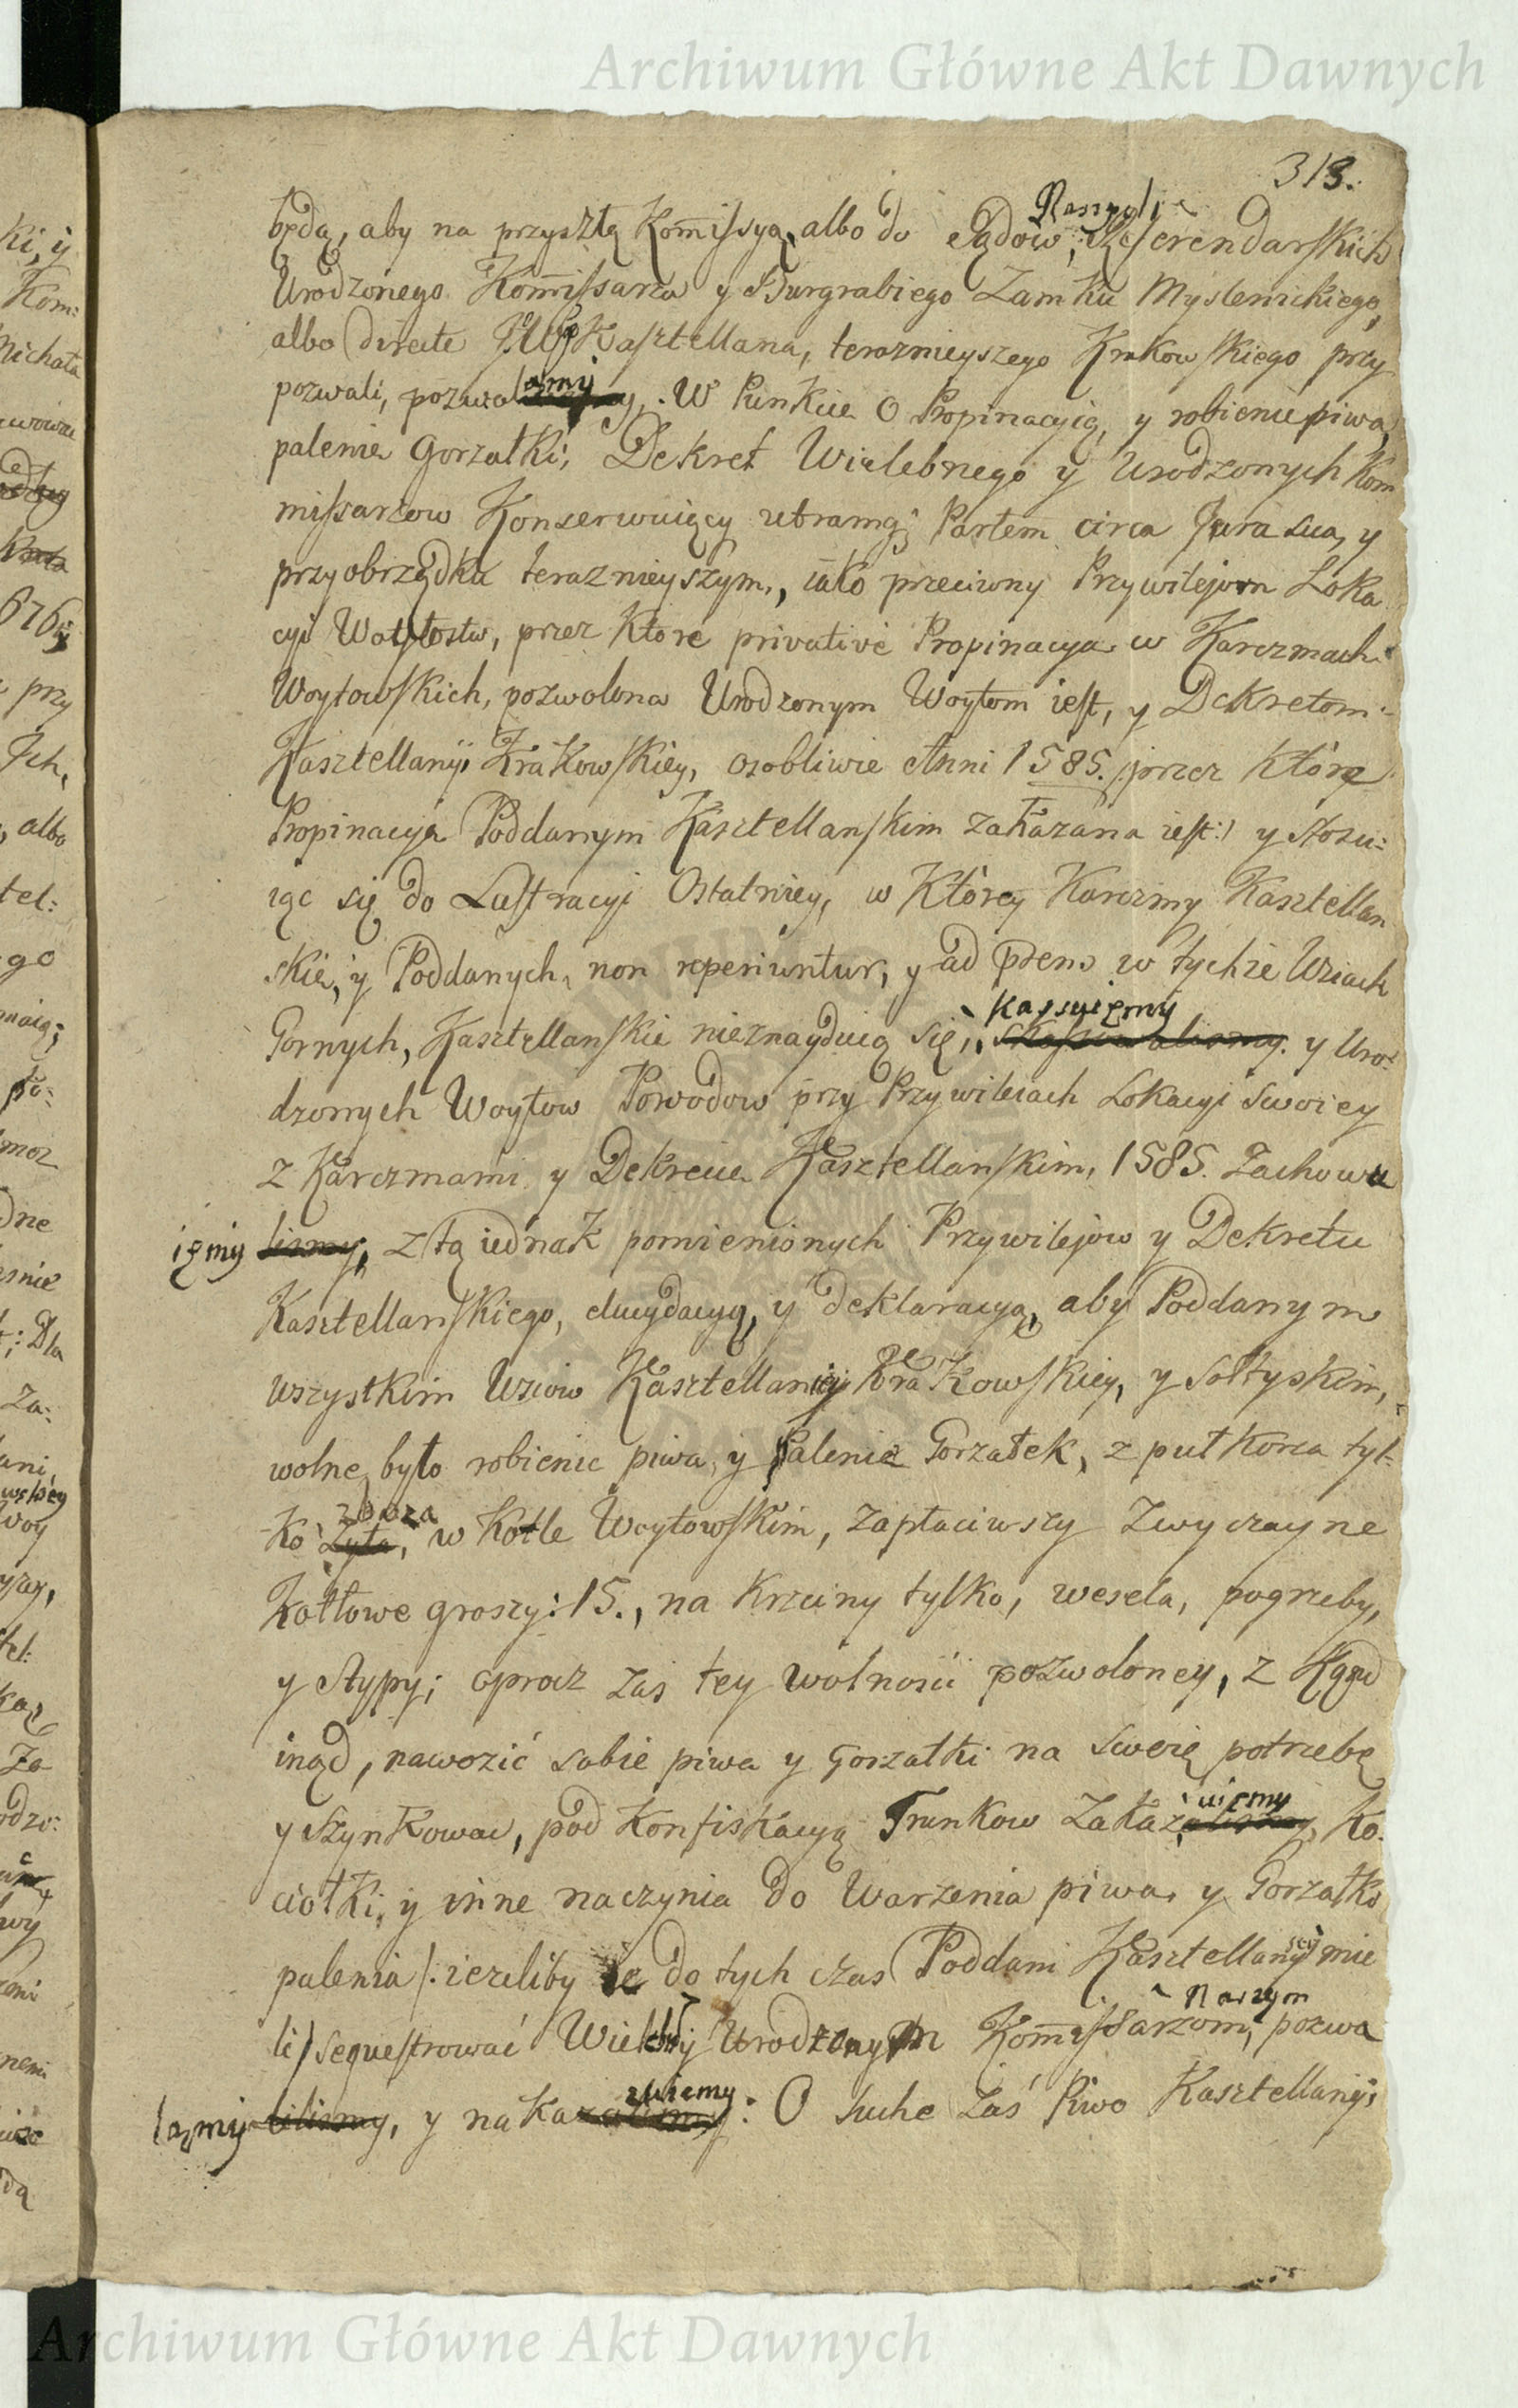 Archiwum Główne Akt Dawnych
313.
będą, aby na przyszłą Kommissyą, albo do Sądow, Naszych Referendarskich
Urodzonego Kommissarza y Burgrabiego Zamku Myslenickiego,
albo directe Kasztellana, teraznieyszego Krakowskiego przy
pozwali, pozwalamy. W Punkcie O Propinacyią, y robienie piwa,
palenie Gorzałki, Dekret Wielebnego y Urodzonych Kom
missarzow Konserwuiący utramq; Partem circa Jura sua, y
przy obrządku teraznieyszym, iako przeciwny Przywilejom Loka
cyi Woytostw, przez Ktore privativè Propinacya w Karczmach
Woytowskich, pozwolona Urodzonym Woytom iest, y Dekretom
Kasztellanyi Krakowskiey, osobliwie Anni 1585. /:przez Które
Propinacya Poddanym Kasztellanskim zakazana iest:/ y stosu:
iąc się do Lustracyi Ostatniey, w Którey Karczmy Kasztellan
skie, y Poddanych, non reperiuntur, y ad prens w tychże Wsiach
Gornych, Kasztellanskie nieznayduią się, Kassuiemy y Uro:
dzonych Woytow Powodow przy Przywileiach Lokacyi swoiey
z Karczmami y Dekrecie Kasztellanskim, 1585. Zachowu
iemy lismy, z tą iednak pomienionych Przywilejow y Dekretu
Kasztellanskiego, elucydacyą, y deklaracyą, aby Poddanym
wszystkim Wsiow Kasztellanyi Krakowskiey, y Sołtyskim,
wolne było robienie piwa, y Palenie Gorzałek, z puł Korca tyl:
ko zboza Zyta, w Kotle Woytowskim, zapłaciwszy Zwyczayne
Kotłowe groszy: 15., na Krzciny tylko, wesela, pogrzeby,
y Stypy; oprocz zaś tey wolności pozwoloney, z Kąd
inąd, nawozić sobie piwa y Gorzałki na swoię potrzebę
y Szynkować, pod Konfiskacyą Trunkow Zakazuiemy, Ko:
ciołki, y inne naczynia do Warzenia piwa, y Gorzałki
palenia /: iezeliby ie do tych czas Poddani Kasztellanyi mie
li/ sequestrować Urodzonym Kommissarzom, Naszym pozwa
lamy lilismy, y nakazuiemy: O suche zaś Piwo Kasztellanyi
Archiwum Główne Akt Dawnych